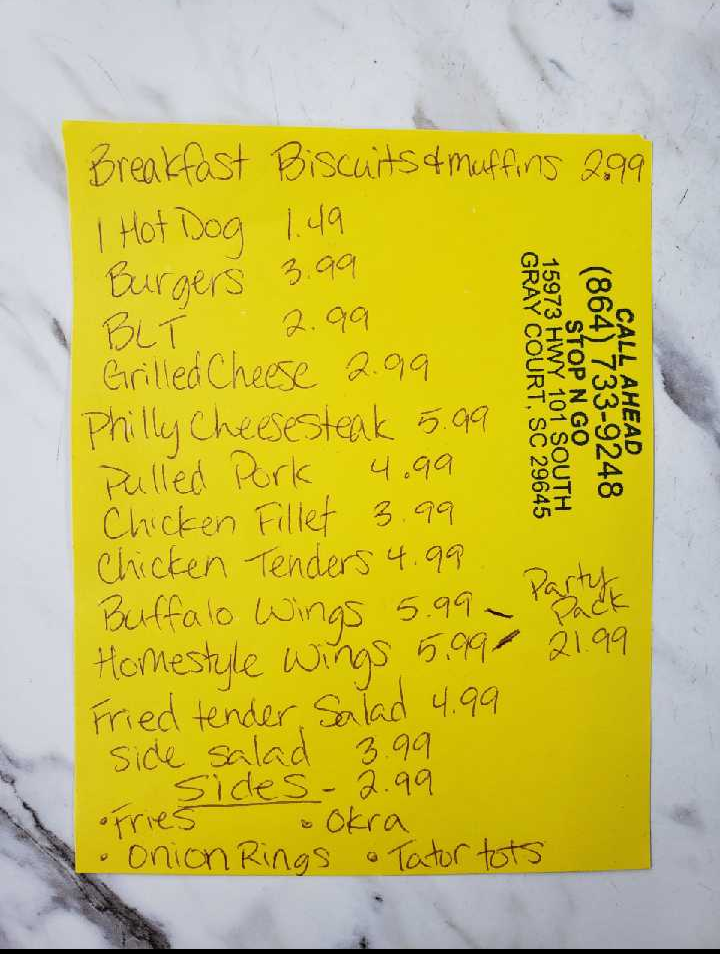 Breakfast Biscuits & muffins 2.99
1 Hot Dog 1.49
Burgers 3.99
BLT 2.99
Grilled Cheese 2.99
Philly Cheesesteak 5.99
Pulled Pork 4.99
Chicken Fillet 3.99
Chicken Tenders 4.99
Buffalo Wings 5.99
Homestyle Wings 5.99
Party
Pack
21.99
Fried tender Salad 4.99
side salad 3.99
Sides - 2.99
• Fries • Okra
• Onion Rings • Tator tots
CALL AHEAD
(864) 733-9248
STOP N GO
15973 HWY 101 SOUTH
GRAY COURT, SC 29645